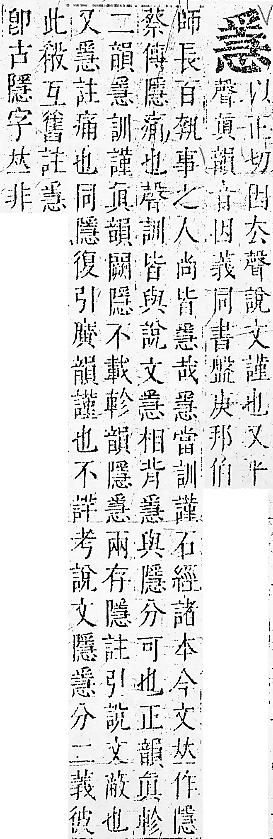 㥯
以正切因去聲說文謹也又平
聲真韻音因義同書盤庚邦伯
師長百執事之人尚皆㥯哉㥯當訓謹石經諸本今文𠀤作隱
蔡傳隱痛也聲訓皆與說文㥯相背㥯與隱分可也正韻真軫
二韻㥯訓謹真韻闕隱不載軫韻隱㥯兩存隱註引說文蔽也
又㥯註痛也同隱復引廣韻謹也不詳考說文隱㥯分二義彼
此殽互舊註㥯
卽古隱字𠀤非